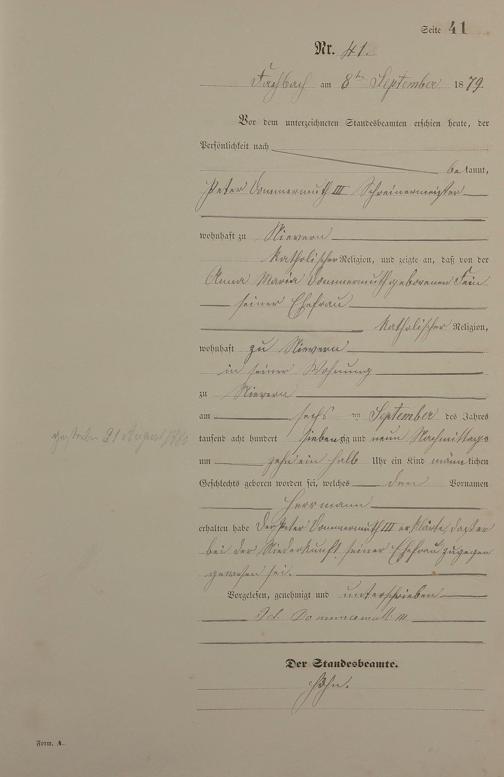 Seite 41
Nr. 41.
Fachbach am 8ten September 1879.
Vor dem unterzeichneten Standesbeamten erschien heute, der
Persönlichkeit nach
bekannt,
Peter Dommermuth III Schreinermeister
wohnhaft zu Nievern
katholischer Religion, und zeigte an, daß von der
Anna Maria Dommermuth geborenen
seiner Ehefrau
katholischer Religion,
wohnhaft zu Nievern
in seiner Wohnung
zu Nievern
am sechs ten September des Jahres
tausend acht hundert siebenzig und neun Nachmittags
um zehn ein halb Uhr ein Kind männliches
Geschlechts geboren worden sei, welches den Vornamen
Herrmann
gestorben 21 August
erhalten habe Der Peter Dommermuth III erklärte, daß er
bei der Niederkunft seiner Ehefrau zugegen
gewesen sei.
Vorgelesen, genehmigt und unterschrieben
Dommermuth III
Der Standesbeamte.
Form. A.